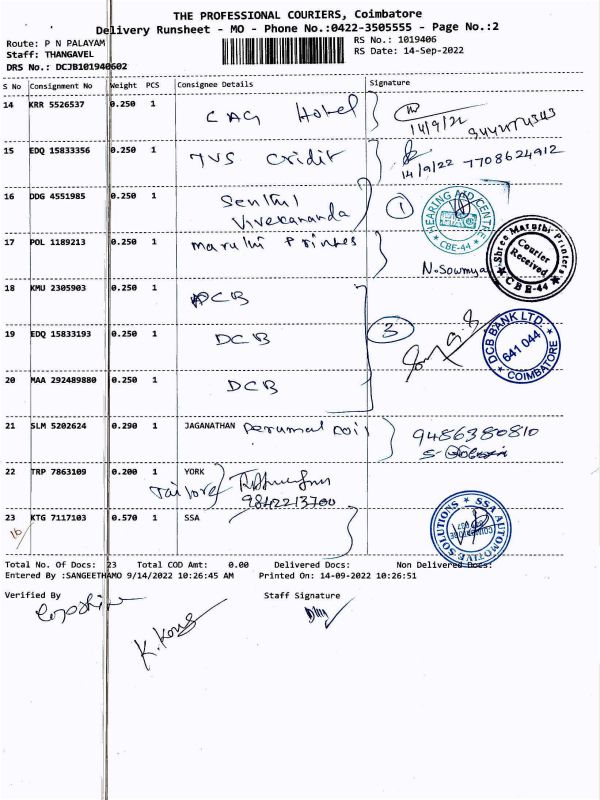 THE PROFESSIONAL COURIERS, Coimbatore
Delivery Runsheet - MO - Phone No.:0422-3505555 - Page No.:2
Route: P N PALAYAM
RS No.: 1019406
Staff: THANGAVEL
RS Date: 14-Sep-2022
DRS No.: DCJB101940602
S No Consignment No Weight PCS Consignee Details Signature
14 KRR 5526537 0.250 1 CAG Hotel
14/9/22
15 EDQ 15833356 0.250 1 TVS Credit
14/9/22 7708624912
16 DDG 4551985 0.250 1 Senthil
Vivekananda
1
HEARING AID CENTRE
* CBE-44 *
17 POL 1189213 0.250 1 Maruthi Printes
N. Sowmya
Shree Maruthi Printers
Courier
Received
CBE-44
18 KMU 2305903 0.250 1 DCB
19 EDQ 15833193 0.250 1 DCB
3
DCB BANK LTD.
641 044
* COIMBATORE *
20 MAA 292489880 0.250 1 DCB
21 SLM 5202624 0.290 1 JAGANATHAN Perumal Coil
9486380810
22 TRP 7863109 0.200 1 YORK
Tailors
9842213700
23 KTG 7117103 0.570 1 SSA
16
SSA AUTOMOTIVE SOLUTIONS
Total No. Of Docs: 23 Total COD Amt: 0.00 Delivered Docs: Non Delivered Docs:
Entered By :SANGEETHAMO 9/14/2022 10:26:45 AM Printed On: 14-09-2022 10:26:51
Verified By Staff Signature